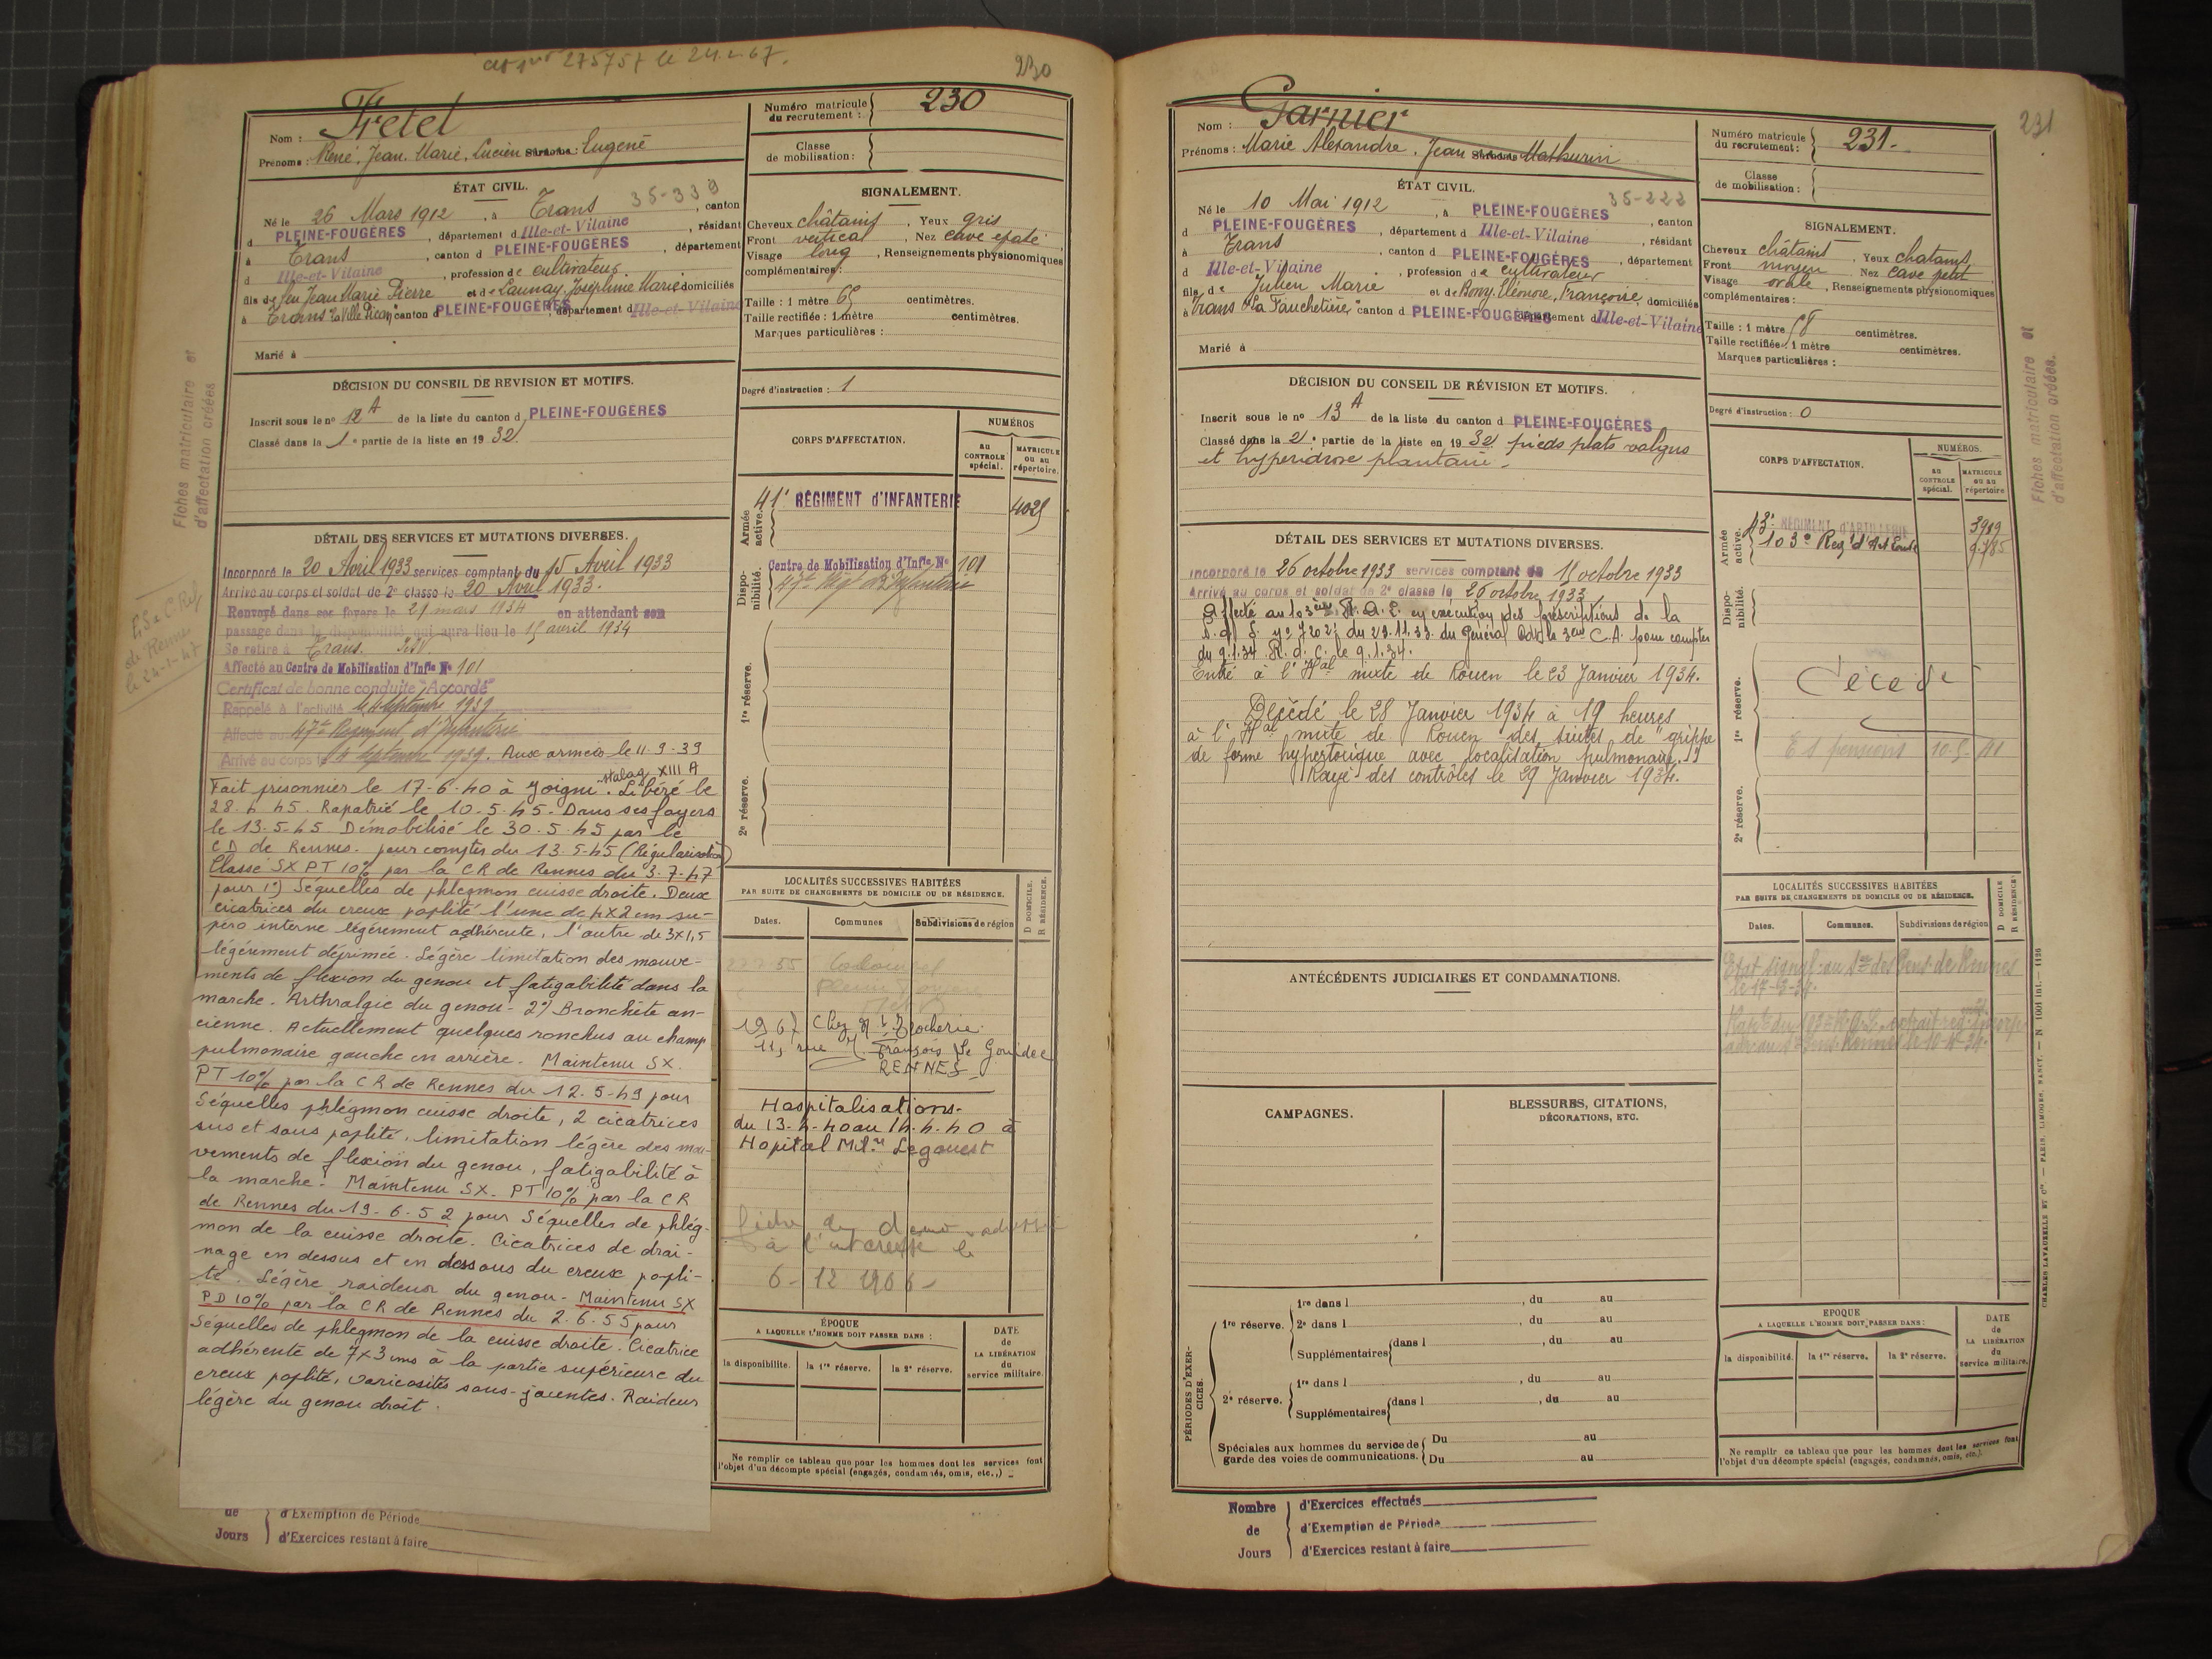 275757 le 24.2.67.
230
Nom : Fretel
Prénoms : René, Jean, Marie, Lucien Surnoms : Eugène
Numéro matricule du recrutement : 230
Classe de mobilisation :
ÉTAT CIVIL.
35-339
Né le 26 Mars 1912, à Trans, canton
d PLEINE-FOUGÈRES, département d Ille-et-Vilaine, résidant
à Trans, canton d PLEINE-FOUGÈRES, département
d Ille-et-Vilaine, profession de cultivateur
fils de feu Jean Marie Pierre et de Launay, Joséphine Marie domiciliés
à Trans "La Ville Pican" canton d PLEINE-FOUGÈRES, département d Ille-et-Vilaine
Marié à
SIGNALEMENT.
Cheveux châtains, Yeux gris
Front vertical, Nez cave épaté
Visage long, Renseignements physionomiques
complémentaires :
Taille : 1 mètre 65 centimètres.
Taille rectifiée : 1 mètre centimètres.
Marques particulières :
Degré d'instruction : 1
DÉCISION DU CONSEIL DE REVISION ET MOTIFS.
Inscrit sous le nº 12 A de la liste du canton d PLEINE-FOUGÈRES
Classé dans la 1e partie de la liste en 1932.
CORPS D'AFFECTATION.
NUMÉROS
au CONTROLE spécial.
MATRICULE ou au répertoire.
Armée active.
41e RÉGIMENT d'INFANTERIE 4025
Disponibilité.
Centre de Mobilisation d'Infie Nº 101
47e Régt d'Infanterie
1re réserve.
2e réserve.
Fiches matriculaire et
d'affectation créées
DÉTAIL DES SERVICES ET MUTATIONS DIVERSES.
Incorporé le 20 Avril 1933 services comptant du 15 Avril 1933
Arrivé au corps et soldat de 2e classe le 20 Avril 1933.
Renvoyé dans ses foyers le 29 mars 1934 en attendant son
passage dans la disponibilité qui aura lieu le 15 avril 1934
Se retire à Trans. I&V
Affecté au Centre de Mobilisation d'Infie Nº 101
Certificat de bonne conduite "Accordé"
Rappelé à l'activité le 4 septembre 1939
Affecté au 47e Régiment d'Infanterie
Arrivé au corps le 4 septembre 1939. Aux armées le 11.9.39
de Rennes
le 24-1-47
stalag XIII A
Fait prisonnier le 17-6-40 à Joigni. Libéré le
28.4.45. Rapatrié le 10-5-45- Dans ses foyers
le 13-5-45 Démobilisé le 30.5.45 par le
CD de Rennes. pour compter du 13.5-45 (Régularisation)
Classé SX PT 10% par la CR de Rennes du 3-7-47
pour 1º) Séquelles de phlegmon cuisse droite. Deux
cicatrices du creux poplité l'une de 4x2 cm su-
péro interne légèrement adhérente, l'autre de 3x1,5
légèrement déprimée. Légère limitation des mouve-
ments de flexion du genou et fatigabilité dans la
marche. Arthralgie du genou- 2º) Bronchite an-
cienne. Actuellement quelques ronchus au champ
pulmonaire gauche en arrière. Maintenu SX.
PT 10% par la CR de Rennes du 12.5-49 pour
Séquelles phlegmon cuisse droite, 2 cicatrices
sus et sous poplité, limitation légère des mou-
vements de flexion du genou, fatigabilité à
la marche. Maintenu SX. PT 10% par la CR
de Rennes du 19-6-52 pour Séquelles de phleg-
mon de la cuisse droite. Cicatrices de drai-
nage en dessus et en dessous du creux popli-
té. Légère raideur du genou- Maintenu SX
PD 10% par la CR de Rennes du 2.6.55 pour
Séquelles de phlegmon de la cuisse droite. Cicatrice
adhérente de 7x3 cms à la partie supérieure du
creux poplité, varicosités sous-jacentes. Raideur
légère du genou droit.
LOCALITÉS SUCCESSIVES HABITÉES
PAR SUITE DE CHANGEMENTS DE DOMICILE OU DE RÉSIDENCE.
Dates. Communes Subdivisions de région
D DOMICILE. R RÉSIDENCE.
55
1967 Chez Mr Trocherie
11, rue J. François Le Gonidec
RENNES
Hospitalisations-
du 13-4-40 au 14.4.40 à
Hopital Milre Legouest
à l'intéressé le
6-12 1966-
ÉPOQUE
A LAQUELLE L'HOMME DOIT PASSER DANS :
la disponibilité. la 1re réserve. la 2e réserve.
DATE de LA LIBÉRATION du service militaire.
Ne remplir ce tableau que pour les hommes dont les services font
l'objet d'un décompte spécial (engagés, condamnés, omis, etc.,)
de
Jours
d'Exemption de Période
d'Exercices restant à faire
231
Nom : Garnier
Prénoms : Marie Alexandre, Jean Surnoms Mathurin
Numéro matricule du recrutement : 231.
Classe de mobilisation :
ÉTAT CIVIL.
35-222
Né le 10 Mai 1912, à PLEINE-FOUGÈRES, canton
d PLEINE-FOUGÈRES, département d Ille-et-Vilaine, résidant
à Trans, canton d PLEINE-FOUGÈRES, département
d Ille-et-Vilaine, profession de cultivateur
fils de Julien Marie et de Bovy, Eléonore, Françoise, domiciliés
à Trans "La Fauchetière" canton d PLEINE-FOUGÈRES département d Ille-et-Vilaine
Marié à
SIGNALEMENT.
Cheveux châtains, Yeux chatains
Front moyen, Nez cave petit
Visage ovale, Renseignements physionomiques
complémentaires :
Taille : 1 mètre 58 centimètres.
Taille rectifiée : 1 mètre centimètres.
Marques particulières :
Degré d'instruction : 0
DÉCISION DU CONSEIL DE RÉVISION ET MOTIFS.
Inscrit sous le nº 13 A de la liste du canton d PLEINE-FOUGÈRES
Classé dans la 2e partie de la liste en 1932. pieds plats valgus
et hyperidrose plantaire.
CORPS D'AFFECTATION.
NUMÉROS.
au CONTROLE spécial.
MATRICULE ou au répertoire
Armée active.
43e RÉGIMENT d'ARTILLERIE 3909
103e Reg' d'Art Lourde 9.785
Disponibilité.
1re réserve.
Décédé
10-5-41
2e réserve.
Fiches matriculaire et
d'affectation créées.
DÉTAIL DES SERVICES ET MUTATIONS DIVERSES.
Incorporé le 26 octobre 1933 services comptant du 15 octobre 1933
Arrivé au corps et soldat de 2e classe le 26 octobre 1933
Affecté au 103eme R.A.L. en exécution des prescriptions de la
du 23.11.33. du Général Cdt le 3eme C.A. pour compter
du 9.1.34. R.d.C. le 9.1.34.
Entré à l'Hal mixte de Rouen le 23 Janvier 1934.
Décédé le 28 Janvier 1934 à 19 heures
à l'Hal mixte de Rouen des suites de "grippe
de forme hypertoxique avec localisation pulmonaire."
Rayé des contrôles le 29 Janvier 1934.
ANTÉCÉDENTS JUDICIAIRES ET CONDAMNATIONS.
LOCALITÉS SUCCESSIVES HABITÉES
PAR SUITE DE CHANGEMENTS DE DOMICILE OU DE RÉSIDENCE.
Dates. Communes. Subdivisions de région
D DOMICILE R RÉSIDENCE
Etat signal. au Sce des Pens. de Rennes
le 17-3-34.
CAMPAGNES.
BLESSURES, CITATIONS,
DÉCORATIONS, ETC.
PÉRIODES D'EXERCICES.
1re réserve.
1re dans l , du au
2e dans l , du au
Supplémentaires dans l , du au
2e réserve.
1re dans l , du au
Supplémentaires dans l , du au
Spéciales aux hommes du service de
garde des voies de communications.
Du au
Du au
EPOQUE
A LAQUELLE L'HOMME DOIT PASSER DANS :
la disponibilité. la 1re réserve. la 2e réserve.
DATE de LA LIBÉRATION du service militaire.
Ne remplir ce tableau que pour les hommes dont les services font
l'objet d'un décompte spécial (engagés, condamnés, omis, etc.).
CHARLES LAVAUZELLE ET Cie. — PARIS, LIMOGES, NANCY. — N 1001 int. — 1126
Nombre
de
Jours
d'Exercices effectués
d'Exemption de Période
d'Exercices restant à faire